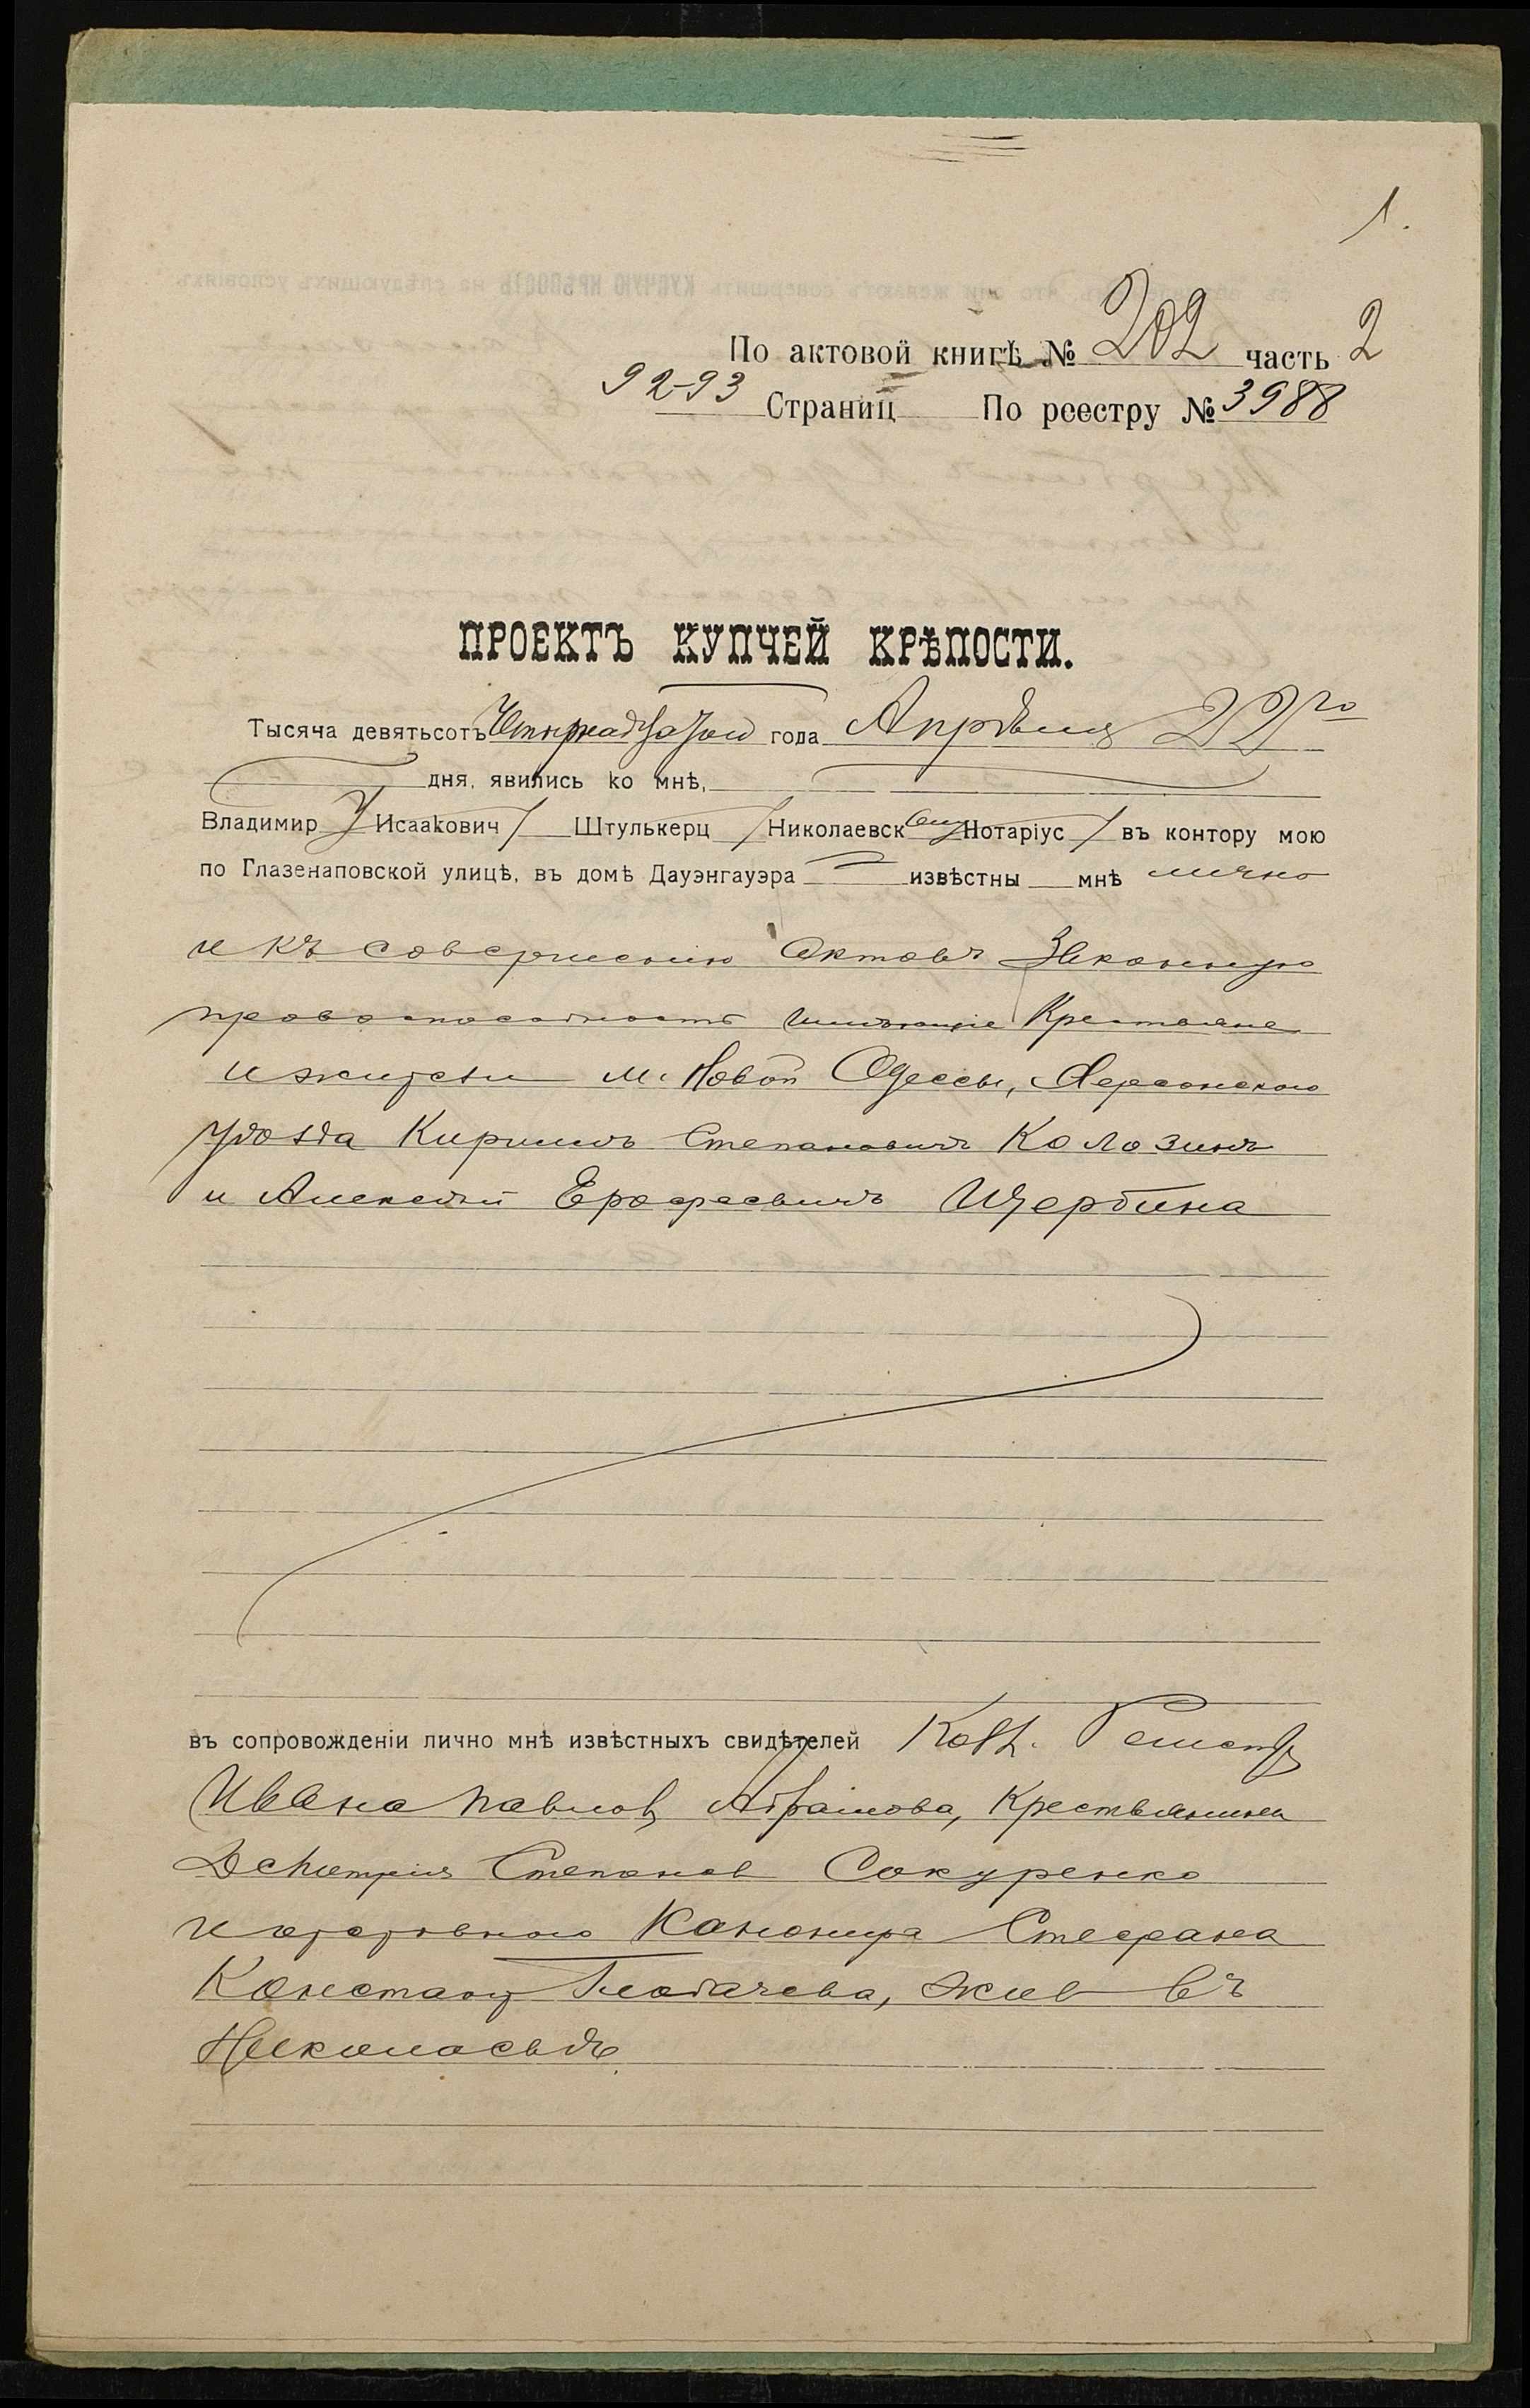 1.
По актовой книгѣ № 202 часть 2
92-93 Страниц По реестру № 3988
ПРОЕКТЪ КУПЧЕЙ КРѢПОСТИ.
Тысяча девятьсотъ Четырнадцатый года Апрѣля 22го
дня, явились ко мнѣ,
Владимир Исаакович Штулькерц Николаевск Нотаріус въ контору мою
по Глазенаповской улицѣ, въ домѣ Дауэнгауэра извѣстны мнѣ лично
и къ совершенію актовъ законную
правоспособность имѣющіе Крестьяне
и жители м. Новой Одессы, Херсонскаго
уѣзда Кириллъ Степановичъ Колозинъ
и Алексѣй Ерофеевичъ Щербина
въ сопровожденіи лично мнѣ извѣстныхъ свидѣтелей
Ивана Павлов Абрамова, Крестьянина
Дмитрія Степанов Сокуренко
и Канонира Стефана
Констант , жив въ
Николаевѣ